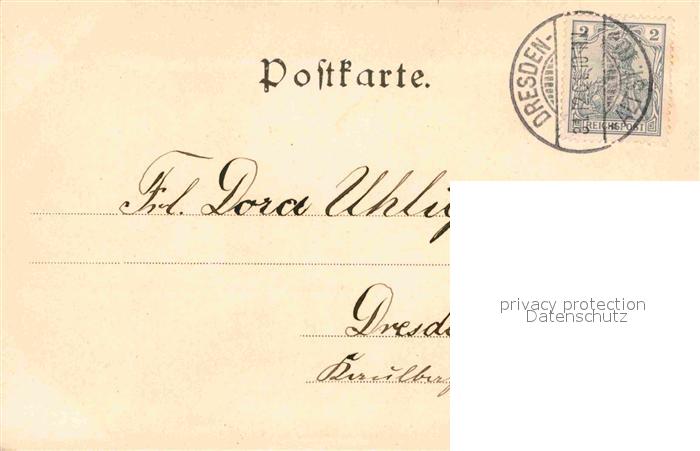 Postkarte.
2 2
REICHSPOST
DRESDEN-
ALTST.
Frl. Dora Uhlig
Dresd
Kaulba
privacy protection
Datenschutz